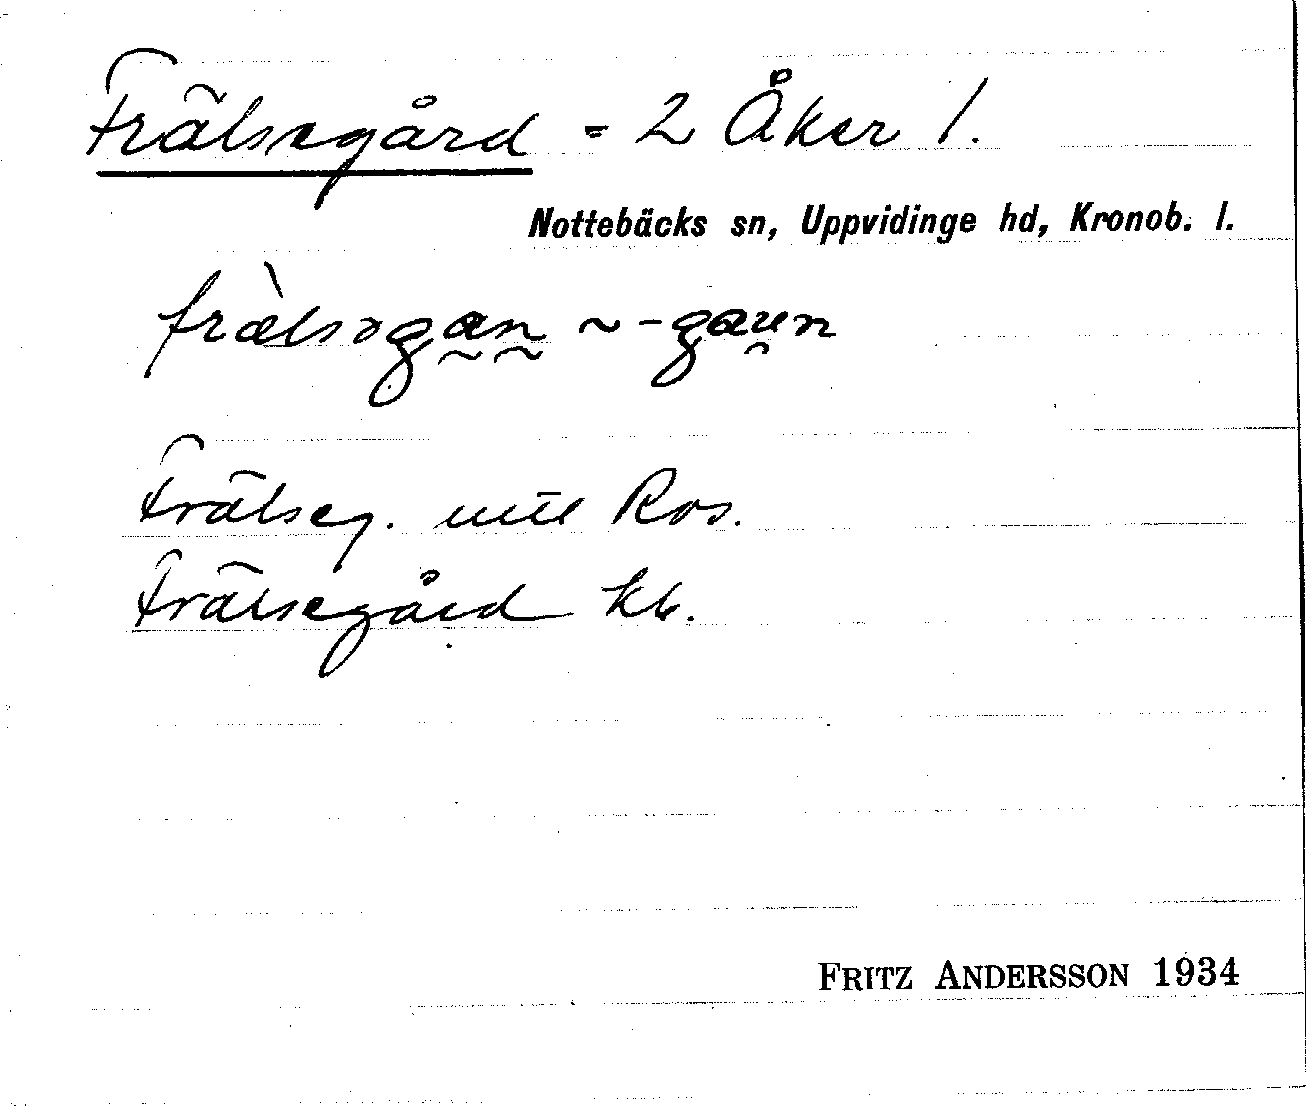 Frälsegård = 2 Åker 1.
Nottebäcks sn, Uppvidinge hd, Kronob. l.
frälsəgan ~ -gaun
Frälseg. Ros.
Frälsegård kb.
FRITZ ANDERSSON 1934